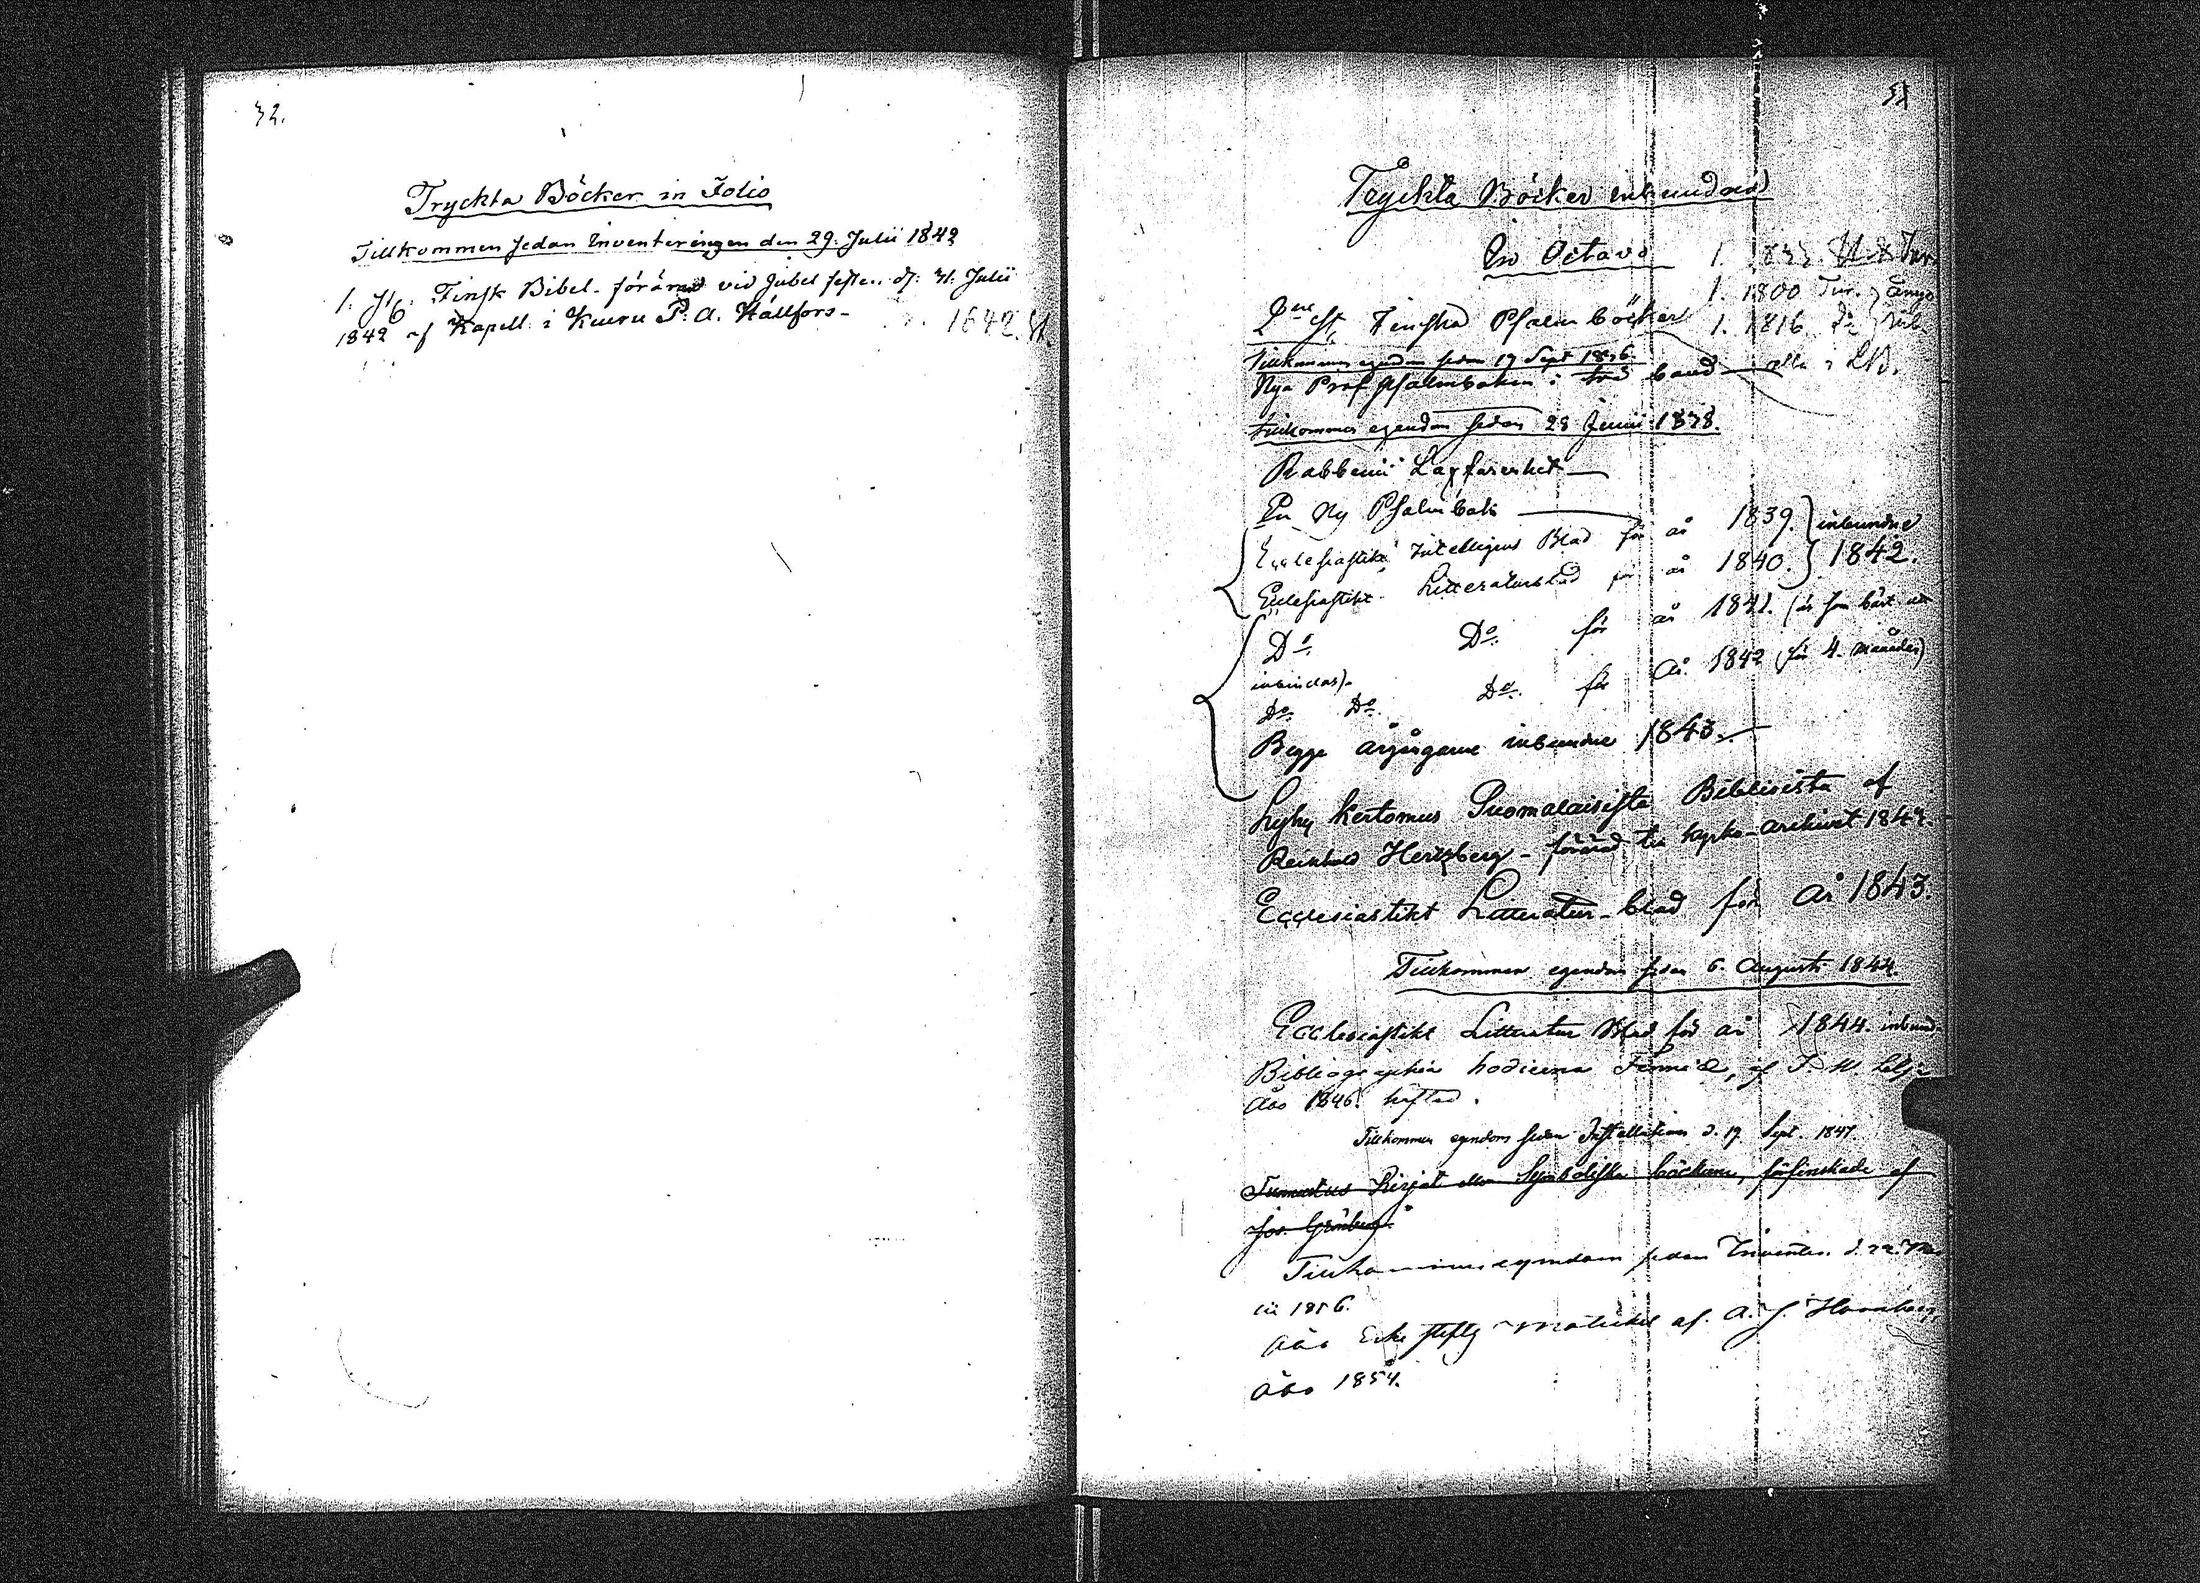 32.
Tryckta Böcker in Folio
Tillkommen sedan Inventeringen den 29. Julii 1842
1. st. Finsk Bibel förärad vid Jubel festen d. 31. Julii
1842 af Kapell. i Kuru P. A. Hällfors 1642. St.
Tryckta Böcker inbundna
In Octavo 1. 1833.
1. 1800 Tur.
2ne st. Finska Psalmböcker 1. 1816. Do
Tillkommen egendom sedan 17 Sept 1836.
Nya Prof Psalmboken i två band
Tillkommen egendom sedan 28 Junii 1838.
Rabbenii Lagfarenhet
En Ny Psalmbok
Ecclesiastikt Intelligens Blad för år 1839. inbundne
Ecclesiastikt Litteraturblad för år 1840. 1842.
Do Do för år 1841. (är som bäst att
inbindas).
Do Do Do för år 1842 (för 4. månader)
Begge årgångarne inbundne 1843.
Lyhy Kertomus Suomalaisista Biblioista af
Reinhold Hertzberg - förärad till kyrko-archivet 1843.
Ecclesiastikt Litteratur-blad för år 1843.
Tillkommen egendom sedan 6. Augusti 1844.
Ecclesiastikt Litteratur Blad för år 1844. inbund.
Bibliographia hodierna Fenniæ, af F. W. Lilja
Åbo 1846. häftad.
Tillkommen egendom sedan Installation d. 19 Sept. 1847.
Tunnustus Kirjat eller Symboliska böckerne, förfinskade af
Jos. Grönberg.
Tillkommen egendom sedan Inventer. d. 22
1856.
Åbo Erke Stifts Matrikel af A. J. Hornborg,
Åbo 1854.